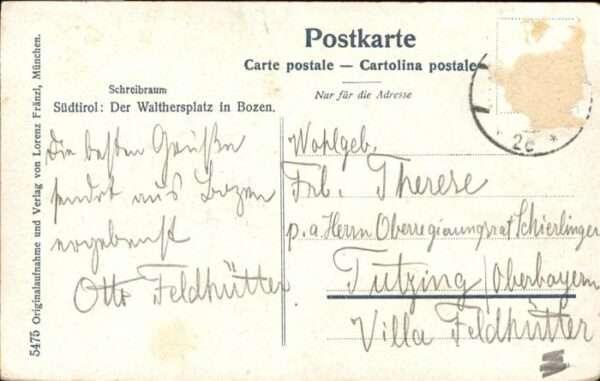 Postkarte
Carte postale — Cartolina postale
Nur für die Adresse
Schreibraum
Südtirol: Der Walthersplatz in Bozen.
5475 Originalaufnahme und Verlag von Lorenz Fränzl, München.
Die besten Grüße
sendet aus Bozen
ergebenst
Otto Feldhütter
Wohlgeb.
Frl. Therese
p. a Herrn Oberregierungsrat Schierlinger
Tutzing / Oberbayern
Villa Feldhütter
26